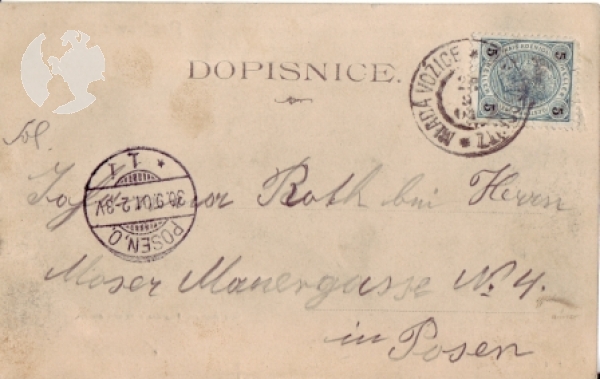 DOPISNICE.
MLADÁ VOŽICE
5 5
5 5
POSEN, O.
1 1
30.9.01.2-3V
Roth bei Herrn
Moser Mauergasse N. 4.
in Posen